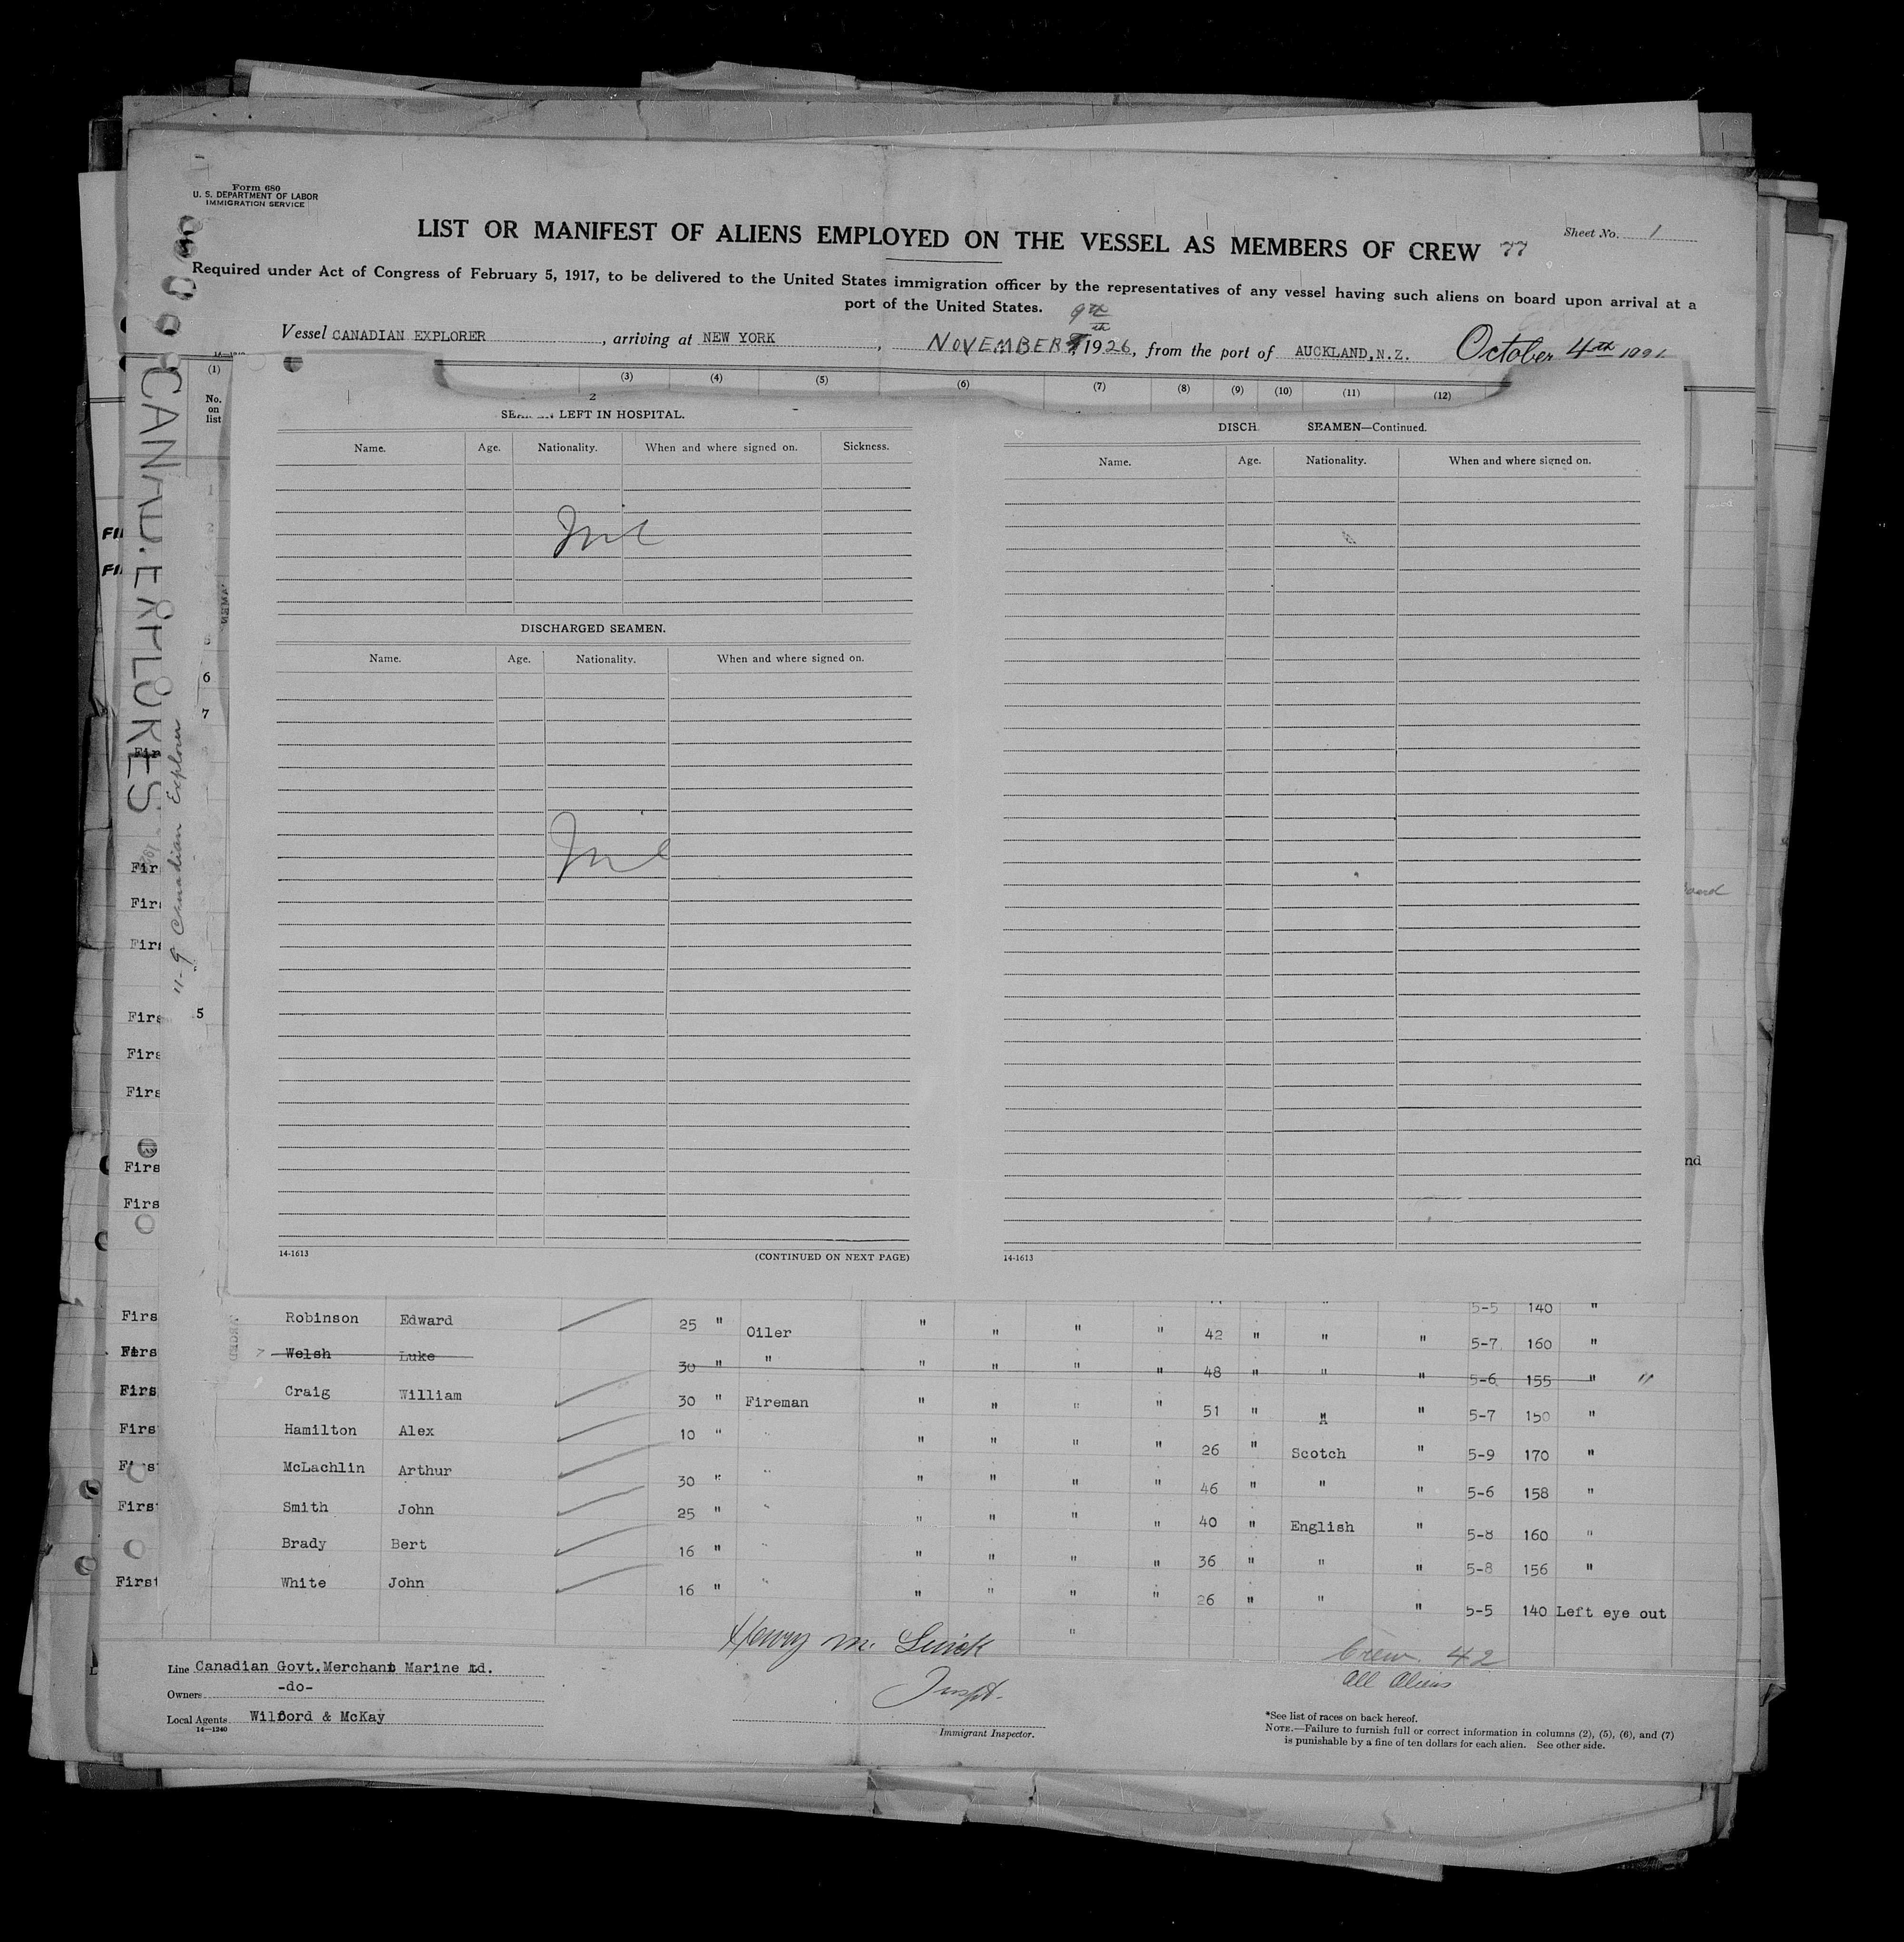 Form 680
U. S. DEPARTMENT OF LABOR
IMMIGRATION SERVICE
LIST OR MANIFEST OF ALIENS EMPLOYED ON THE VESSEL AS MEMBERS OF CREW 77
Sheet No. 1
Required under Act of Congress of February 5, 1917, to be delivered to the United States immigration officer by the representatives of any vessel having such aliens on board upon arrival at a
port of the United States.
9th
Vessel CANADIAN EXPLORER, arriving at NEW YORK, NOVEMBER 1926, from the port of AUCKLAND, N.Z. October 4th
(1) (3) (4) (5) (6) (7) (8) (9) (10) (11) (12)
No. on list
2
LEFT IN HOSPITAL.
Name. Age. Nationality. When and where signed on. Sickness.
Nil
DISCHARGED SEAMEN.
Name. Age. Nationality. When and where signed on.
Nil
14-1613 (CONTINUED ON NEXT PAGE)
DISCH SEAMEN—Continued.
Name. Age. Nationality. When and where signed on.
14-1613
CANAD. EXPLORES
11-9 Canadian Explorer
6
7
5
5-5 140 "
Robinson Edward 25 " Oiler " " " " 42 " " " 5-7 160 "
Welsh Luke 30 " " " " " " 48 " " " 5-6 155 " "
Craig William 30 " Fireman " " " " 51 " " " 5-7 150 "
Hamilton Alex 10 " " " " " " 26 " Scotch " 5-9 170 "
McLachlin Arthur 30 " " " " " " 46 " " " 5-6 158 "
Smith John 25 " " " " " " 40 " English " 5-8 160 "
Brady Bert 16 " " " " " " 36 " " " 5-8 156 "
White John 16 " " " " " " 26 " " " 5-5 140 Left eye out
Henry M.
Inspt.
Immigrant Inspector.
Crew 42
All Aliens
Line Canadian Govt. Merchant Marine Ltd.
Owners -do-
Local Agents Wilford & McKay
14—1240
*See list of races on back hereof.
NOTE.—Failure to furnish full or correct information in columns (2), (5), (6), and (7)
is punishable by a fine of ten dollars for each alien. See other side.